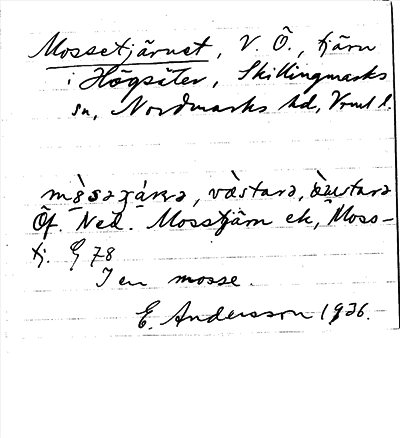 Mossetjärnet, V. Ö., tjärn
i Högsäter, Skillingmarks
sn, Nordmarks hd, Vrml l.
västarə,
Öf. Ned. Mosstjärn ek, Moss-
tj. G 78
I en mosse.
E. Andersson 1936.